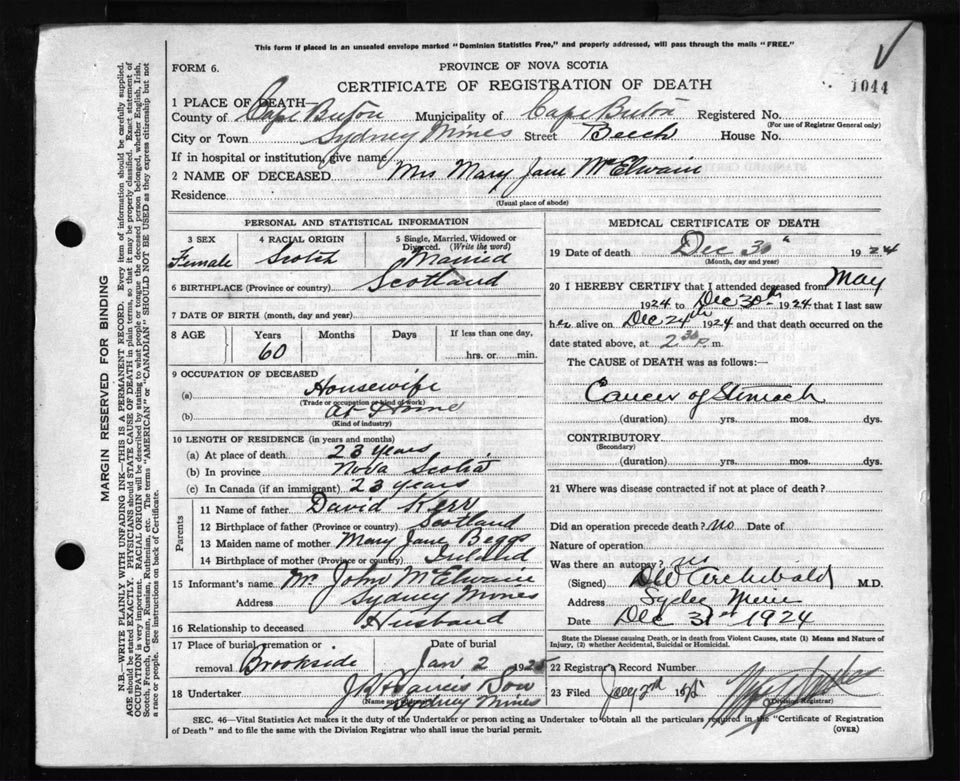 This form if placed in an unsealed envelope marked "Dominion Statistics Free," and properly addressed, will pass through the mails "FREE."
FORM 6.
PROVINCE OF NOVA SCOTIA
CERTIFICATE OF REGISTRATION OF DEATH
1044
1 PLACE OF DEATH—
County of Cape Breton Municipality of Cape Breton Registered No.
(For use of Registrar General only)
City or Town Sydney Mines Street Beech House No.
If in hospital or institution, give name
2 NAME OF DECEASED Mrs Mary Jane McElwain
Residence
(Usual place of abode)
PERSONAL AND STATISTICAL INFORMATION
3 SEX Female
4 RACIAL ORIGIN Scotch
5 Single, Married, Widowed or Divorced. (Write the word) Married
6 BIRTHPLACE (Province or country) Scotland
7 DATE OF BIRTH (month, day and year)
8 AGE Years Months Days If less than one day,
60 hrs. or min.
9 OCCUPATION OF DECEASED
(a) Housewife
(Trade or occupation or kind of work)
(b) at Home
(Kind of industry)
10 LENGTH OF RESIDENCE (in years and months)
(a) At place of death 23 years
(b) In province Nova Scotia
(c) In Canada (if an immigrant) 23 years
Parents
11 Name of father David Kerr
12 Birthplace of father (Province or country) Scotland
13 Maiden name of mother Mary Jane Beggs
14 Birthplace of mother (Province or country) Ireland
15 Informant's name Mr. John McElwain
Address Sydney Mines
16 Relationship to deceased Husband
17 Place of burial, cremation or removal Brookside
Date of burial Jan 2 1925
18 Undertaker J R Francis Son
(Name and address) Sydney Mines
MEDICAL CERTIFICATE OF DEATH
19 Date of death Dec 30 1924
(Month, day and year)
20 I HEREBY CERTIFY that I attended deceased from May
1924 to Dec 30th 1924 that I last saw
her alive on Dec 29th 1924 and that death occurred on
date stated above, at 2 30 P. m.
The CAUSE of DEATH was as follows:
Cancer of Stomach
(duration) yrs. mos. dys.
CONTRIBUTORY
(Secondary)
(duration) yrs. mos. dys.
21 Where was disease contracted if not at place of death?
Did an operation precede death? no Date of
Nature of operation
Was there an autopsy? no
(Signed) DW Archibald M.D.
Address Sydney Mines
Date Dec 31st 1924
State the Disease causing Death, or in death from Violent Causes, state (1) Means and Nature of Injury, (2) whether Accidental, Suicidal or Homicidal.
22 Registrar's Record Number
23 Filed
(Division Registrar)
SEC. 46—Vital Statistics Act makes it the duty of the Undertaker or person acting as Undertaker to obtain all the particulars required in the "Certificate of Registration
of Death" and to file the same with the Division Registrar who shall issue the burial permit.
(OVER)
MARGIN RESERVED FOR BINDING
N.B.—WRITE PLAINLY WITH UNFADING INK—THIS IS A PERMANENT RECORD. Every item of information should be carefully supplied.
AGE should be stated EXACTLY. PHYSICIANS should STATE CAUSE OF DEATH in plain terms, so that it may be properly classified. Exact statement of
OCCUPATION is very important. RACIAL ORIGIN will be described by stating to what people or tongue the deceased person belonged, whether English, Irish,
Scotch, French, German, Russian, Ruthenian, etc. The terms "AMERICAN" or "CANADIAN" SHOULD NOT BE USED as they express citizenship but not
a race or people. See instructions on back of Certificate.